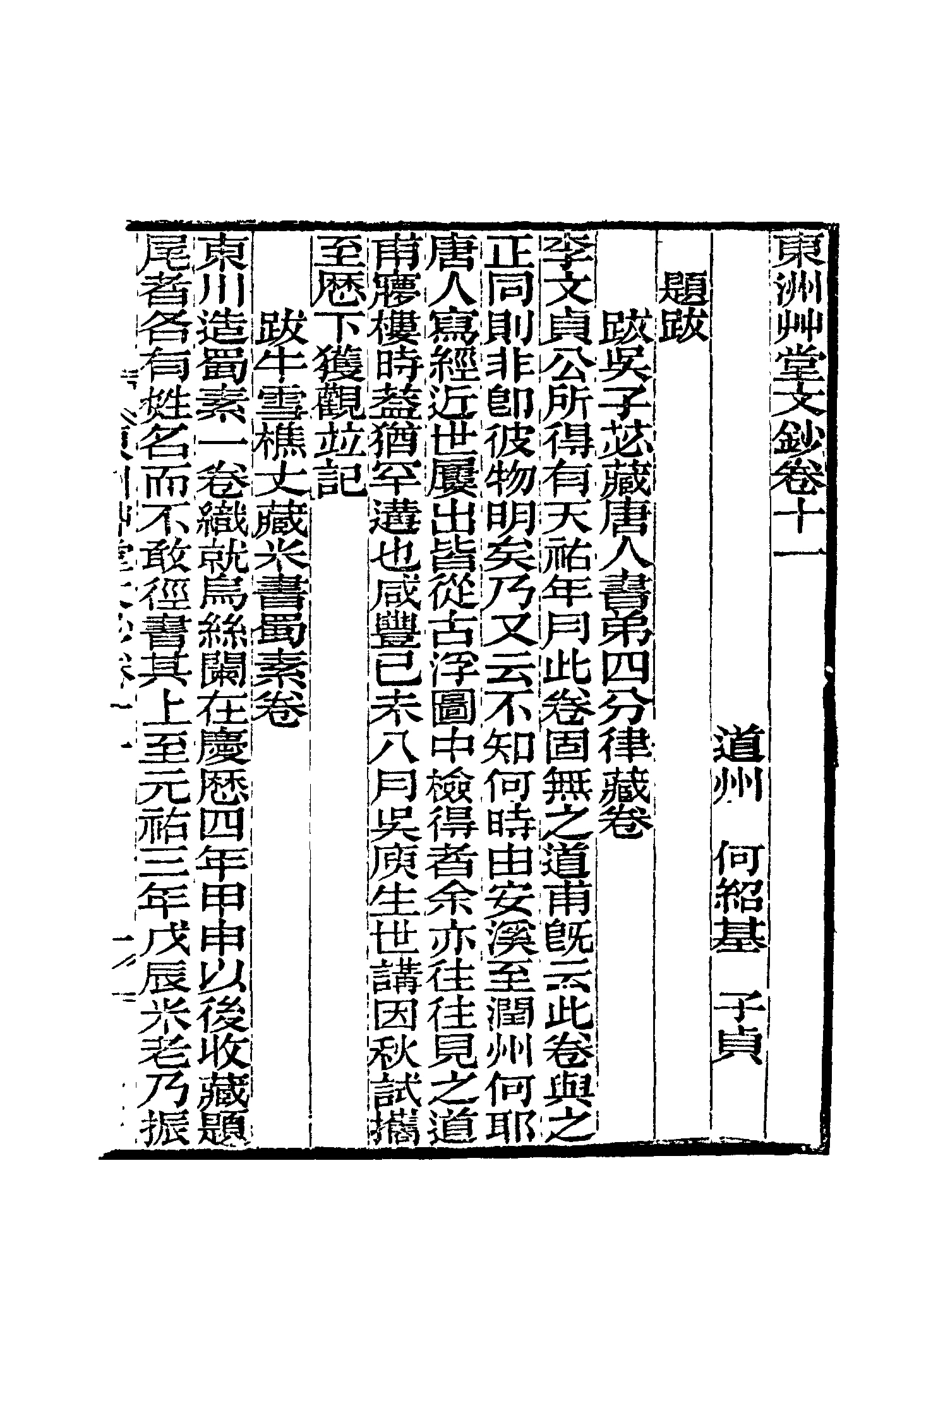 東洲艸堂文鈔卷十一
道州　何紹基　子貞
題跋
跋吳子苾藏唐人書弟四分律藏卷
李文貞公所得有天祐年月此卷固無之道甫旣云此卷與之
正同則非卽彼物明矣乃又云不知何時由安溪至潤州何耶
唐人寫經近世屢出皆從古浮圖中檢得者余亦往往見之道
甫寱樓時葢猶罕遘也咸豐己未八月吳庾生世講因秋試攜
至歷下獲觀竝記
跋牛雪樵丈藏米書蜀素卷
東川造蜀素一卷織就烏絲闌在慶歷四年甲申以後收藏題
尾者各有姓名而不敢徑書其上至元祐三年戊辰米老乃振